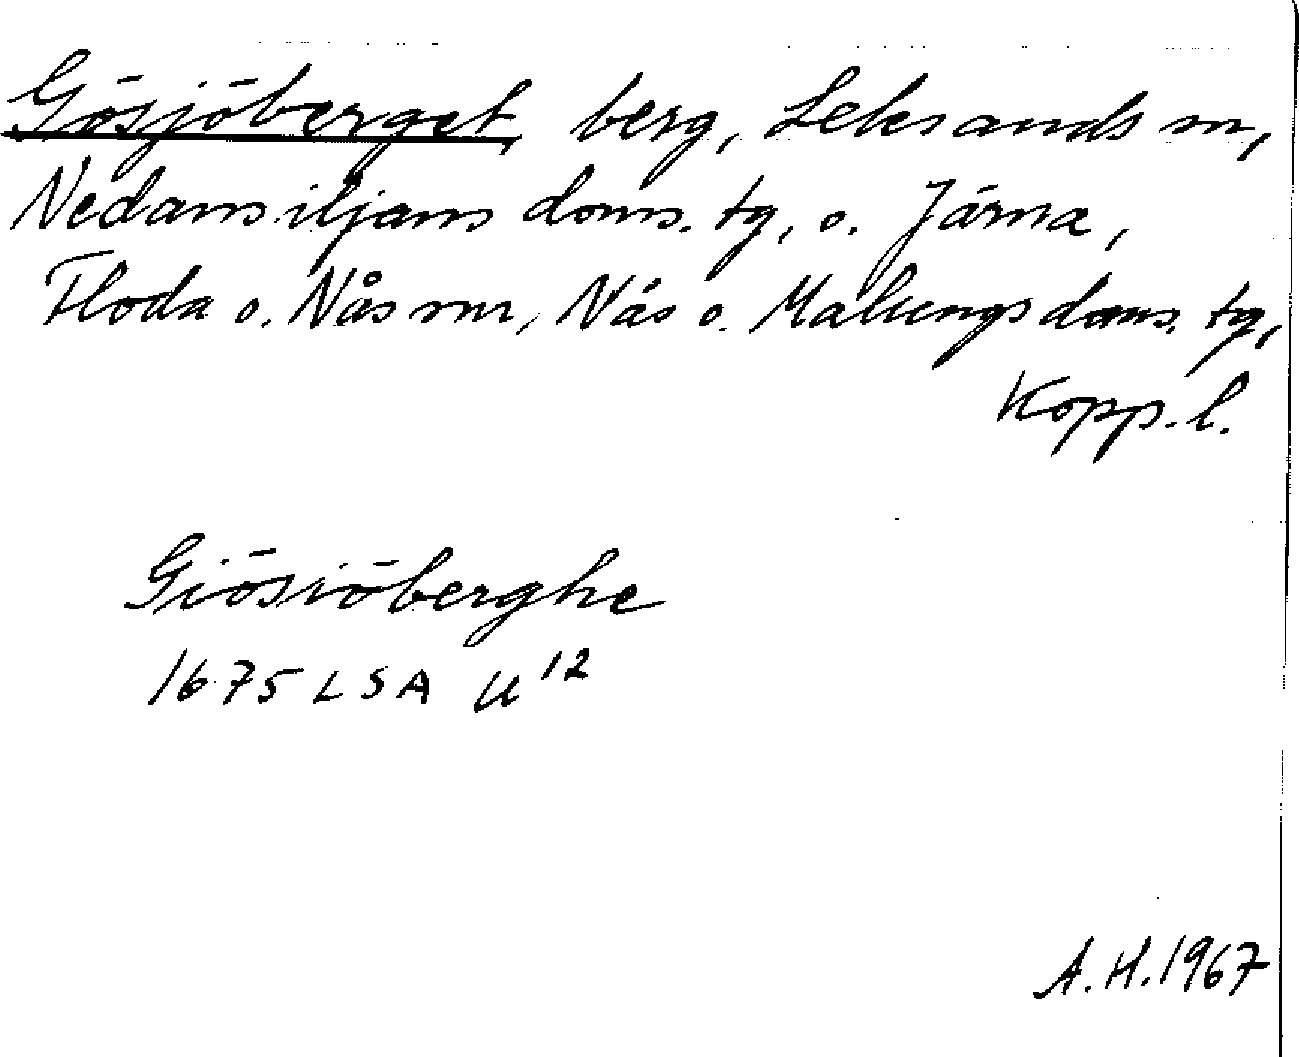 Gösjöberget, berg, Leksands sn,
Nedansiljans doms. tg, o. Järna,
Floda o. Nås snr, Nås o. Malungs doms. tg,
Kopp. l.
Giösiöberghe
1675 LSA U 12
A. H. 1967